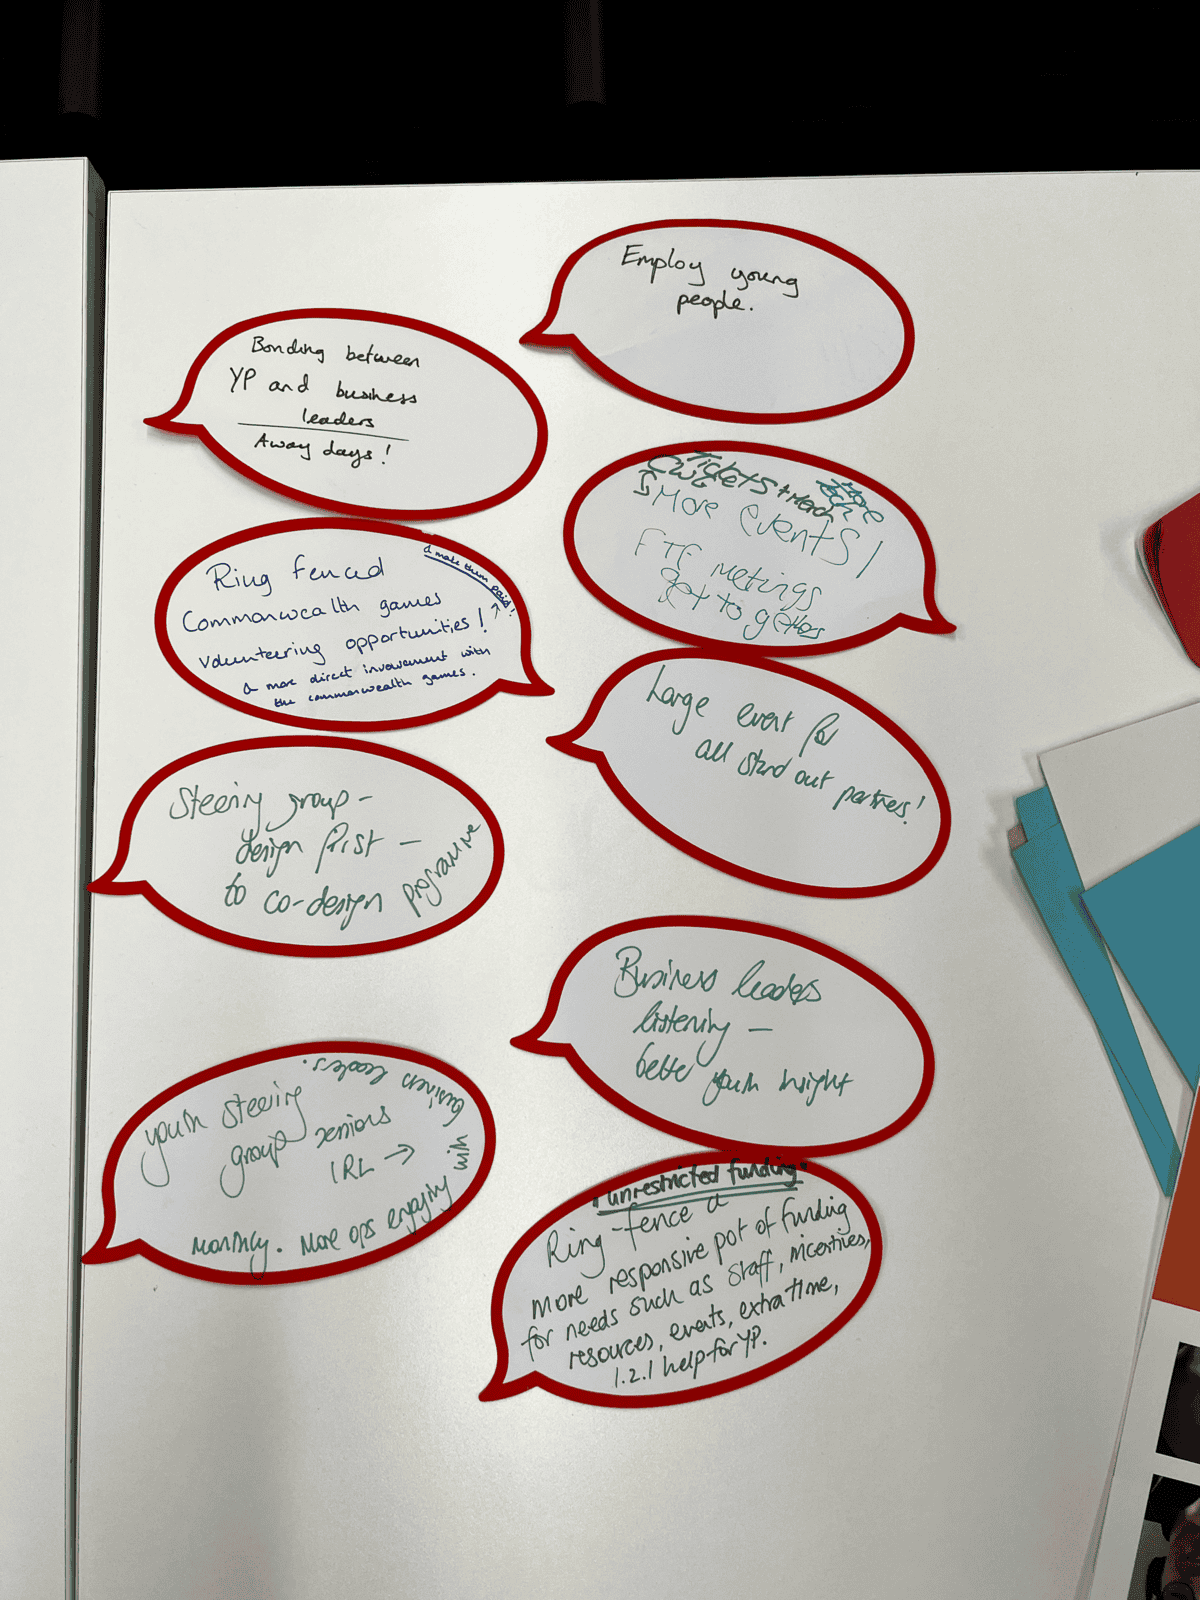 Employ young
people.
Bonding between
YP and business
leaders
Away days!
CWG Tickets + Merch
More events!
FTF metings
get to gethers
Ring fenced
Commonwealth games
volunteering opportunities!
& make them paid!
& more direct involvement with
the commonwealth games.
Large event for
all stand out partners!
Steering group -
design first -
to co-design programme
Business leaders
listening -
better youth insight
youth steering
group seniors
IRL →
monthly. More ops engaging with business leaders.
unrestricted funding.
Ring-fence a
more responsive pot of funding
for needs such as staff, incentives,
resources, events, extra time,
1.2.1 help for YP.